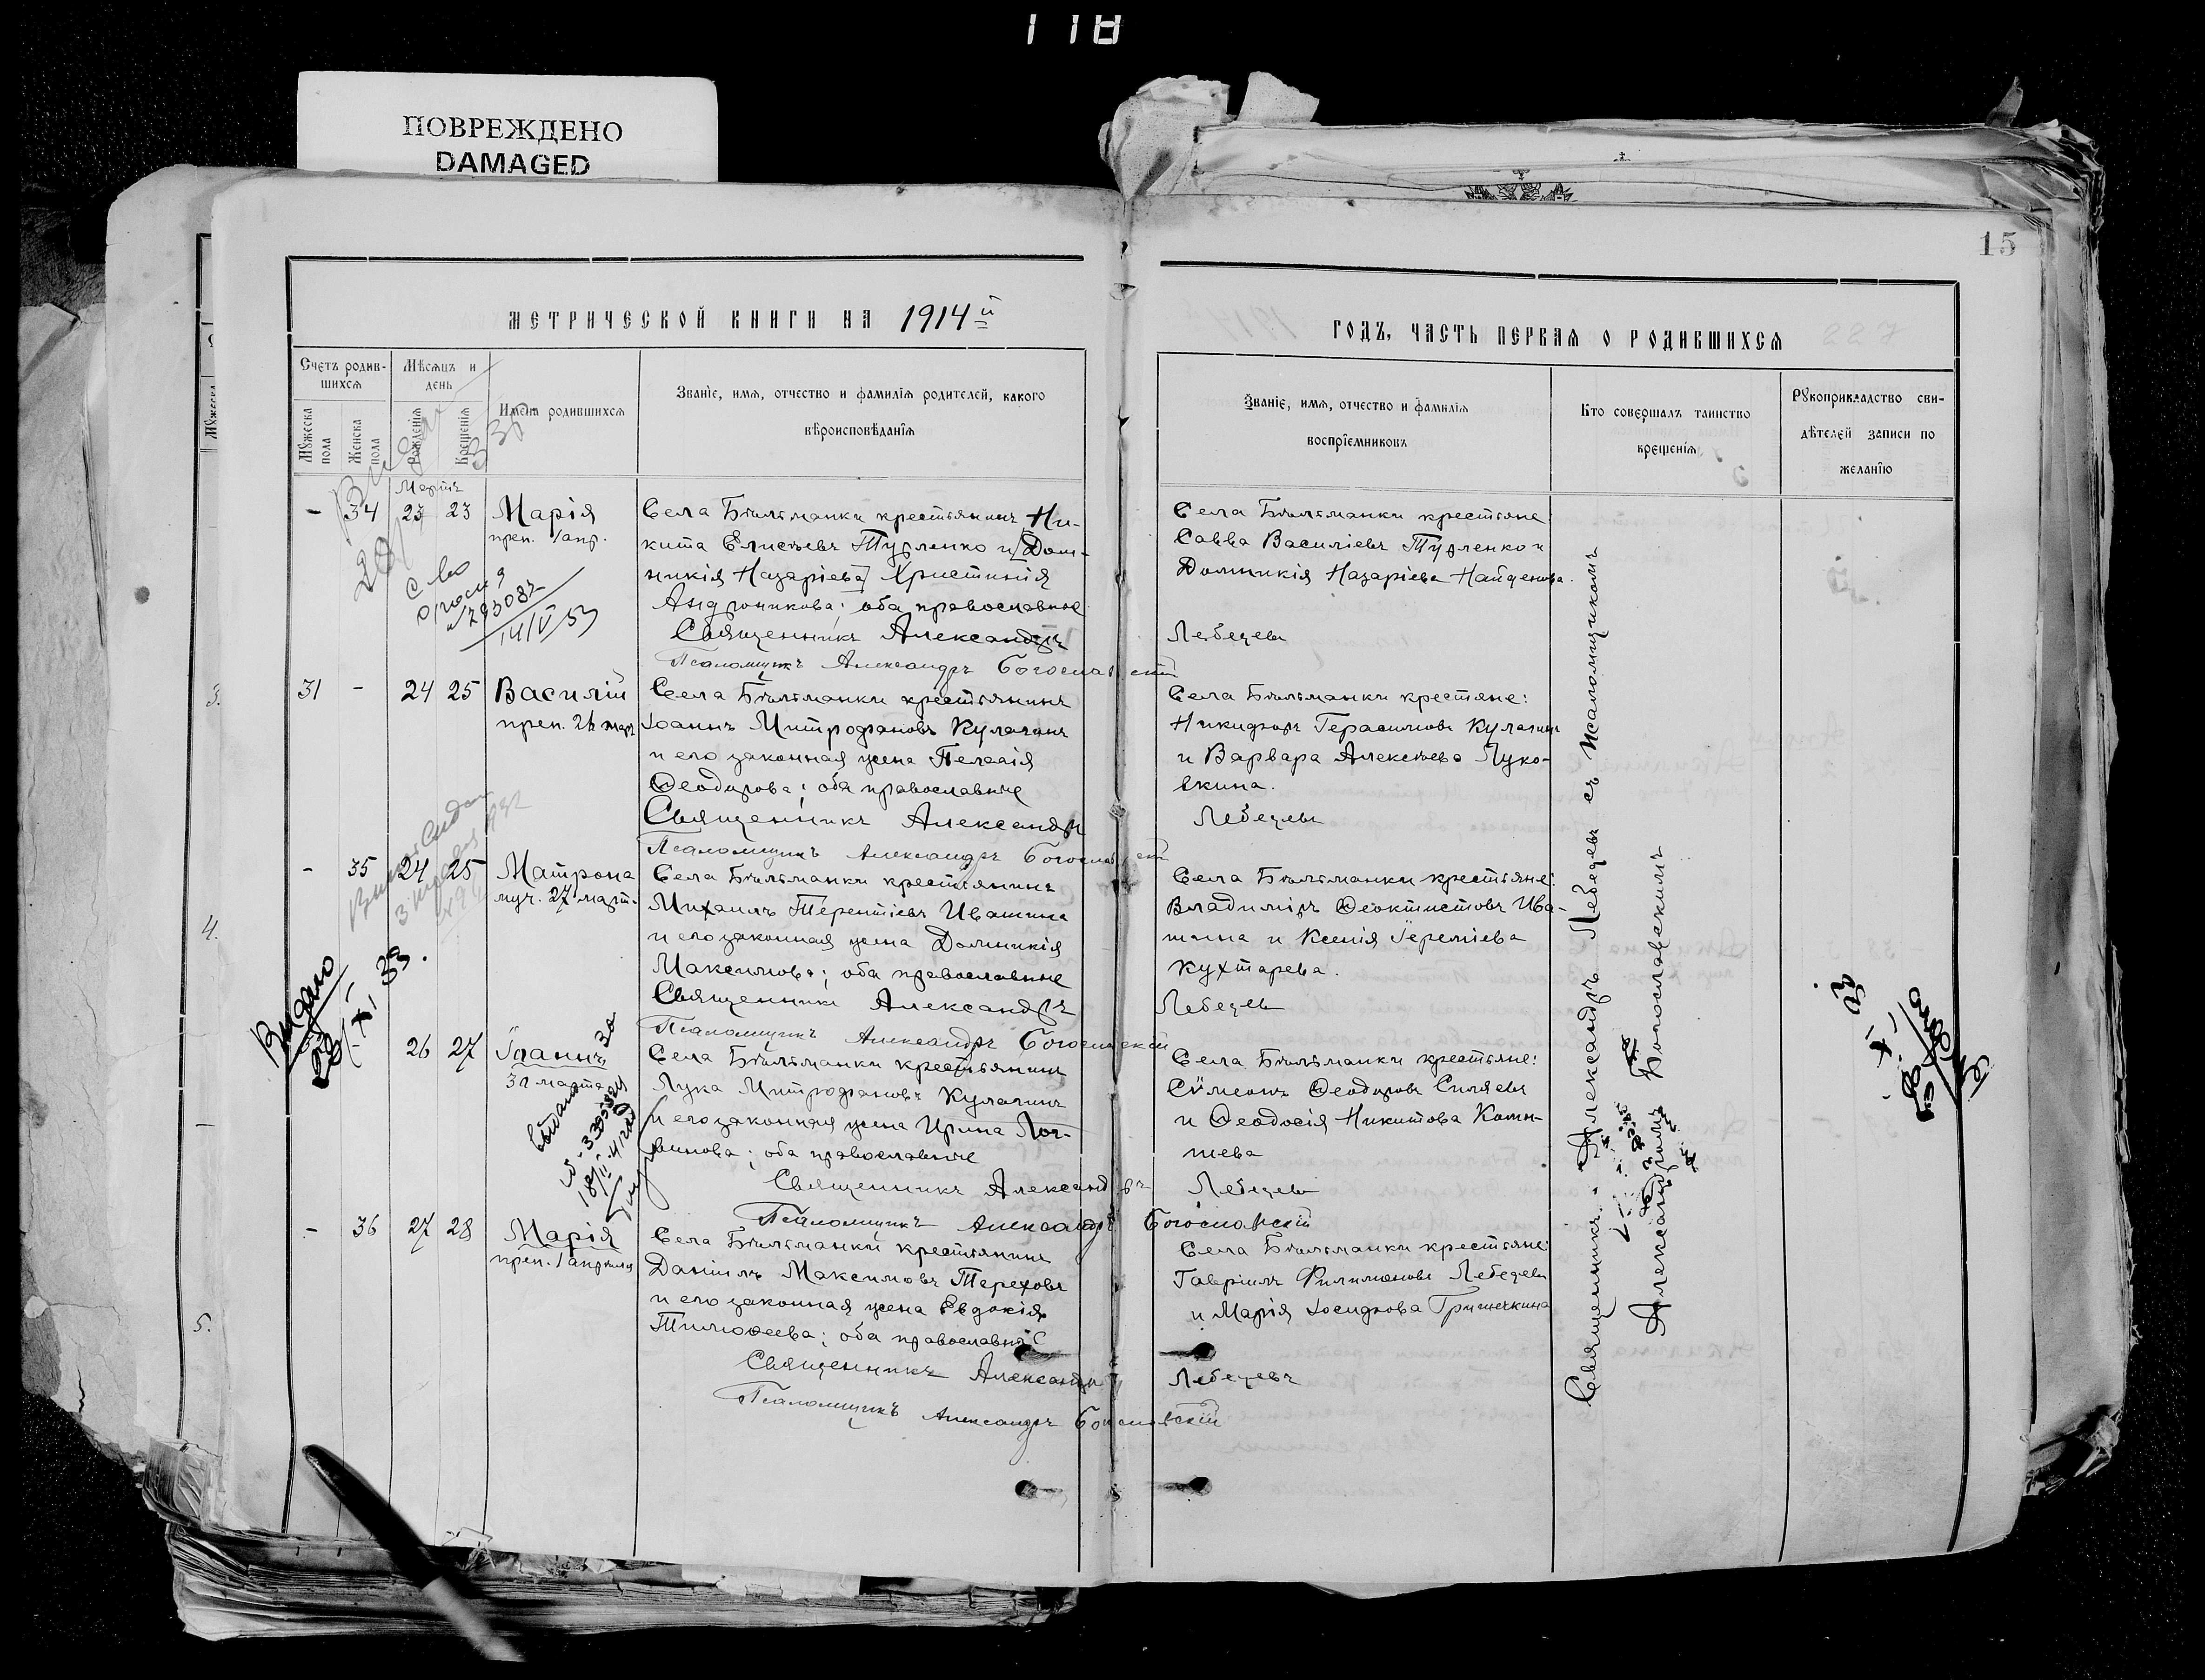 118
ПОВРЕЖДЕНО
DAMAGED
МЕТРИЧЕСКОЙ КНИГИ НА 1914й
Счетъ родив-
шихся
Мѣсяцъ и
день
Мужеска
пола
Женска
пола
Рожденія
Крещенія
Имена родившихся
Званіе, имя, отчество и фамилія родителей, какого
вѣроисповѣданія
Мартъ
- 34 23 23 Марія
преп. 1 апр.
Села Бѣльманки крестьянинъ Ни-
кита Елисѣевъ Турленко и [Дом-
никія Назаріева] Христинія
Андроникова; оба православные
Священникъ Александръ
Псаломщикъ Александръ Богословскій
14/V 53
31 - 24 25 Василій
преп. 26 мар.
Села Бѣльманки крестьянинъ
Іоаннъ Митрофановъ Кулагинъ
и его законная жена Пелагія
Ѳеодорова; оба православные
Священникъ Александръ
Псаломщикъ Александръ Богословскій
- 35 24 25 Матрона
муч. 27 март.
Села Бѣльманки крестьянинъ
Михаилъ Терентіевъ Ивашина
и его законная жена Домникія
Максимова; оба православные
Священникъ Александръ
Псаломщикъ Александръ Богословскій
Выдано
28/XI 33.
26 27 Іоаннъ
30 марта
Села Бѣльманки крестьянинъ
Лука Митрофановъ Кулагинъ
и его законная жена Ирина Лог-
винова; оба православные
Священникъ Александръ
Псаломщикъ Александръ Богословскій
- 36 27 28 Марія
преп. 1 апрѣля
Села Бѣльманки крестьянинъ
Даніилъ Максимовъ Тереховъ
и его законная жена Евдокія
Тимоѳеева; оба православные
Священникъ Александръ
Псаломщикъ Александръ Богословскій
3.
4.
5.
15
ГОДЪ, ЧАСТЬ ПЕРВАЯ О РОДИВШИХСЯ
Званіе, имя, отчество и фамилія
воспріемниковъ
Кто совершалъ таинство
крещенія
Рукоприкладство сви-
дѣтелей записи по
желанію
Села Бѣльманки крестьяне
Савва Василіевъ Турленко и
Домникія Назаріева Найденова.
Лебедевъ
Села Бѣльманки крестяне:
Никифоръ Герасимовъ Кулагинъ
и Варвара Алексѣева Луко-
вкина.
Лебедевъ
Села Бѣльманки крестьяне:
Владиміръ Ѳеоктистовъ Ива-
шина и Ксенія Іереміева
Кухтарева.
Лебедевъ
Села Бѣльманки крестьяне:
Сѵмеонъ Ѳеодоровъ Силяевъ
и Ѳеодосія Никитова Коты-
шева
Лебедевъ
Села Бѣльманки крестьяне:
Гавріилъ Филимоновъ Лебедевъ
и Марія Іосифова Гришечкина
Лебедевъ
Священникъ Александръ Лебедевъ съ псаломщикомъ
Александромъ Богословскимъ